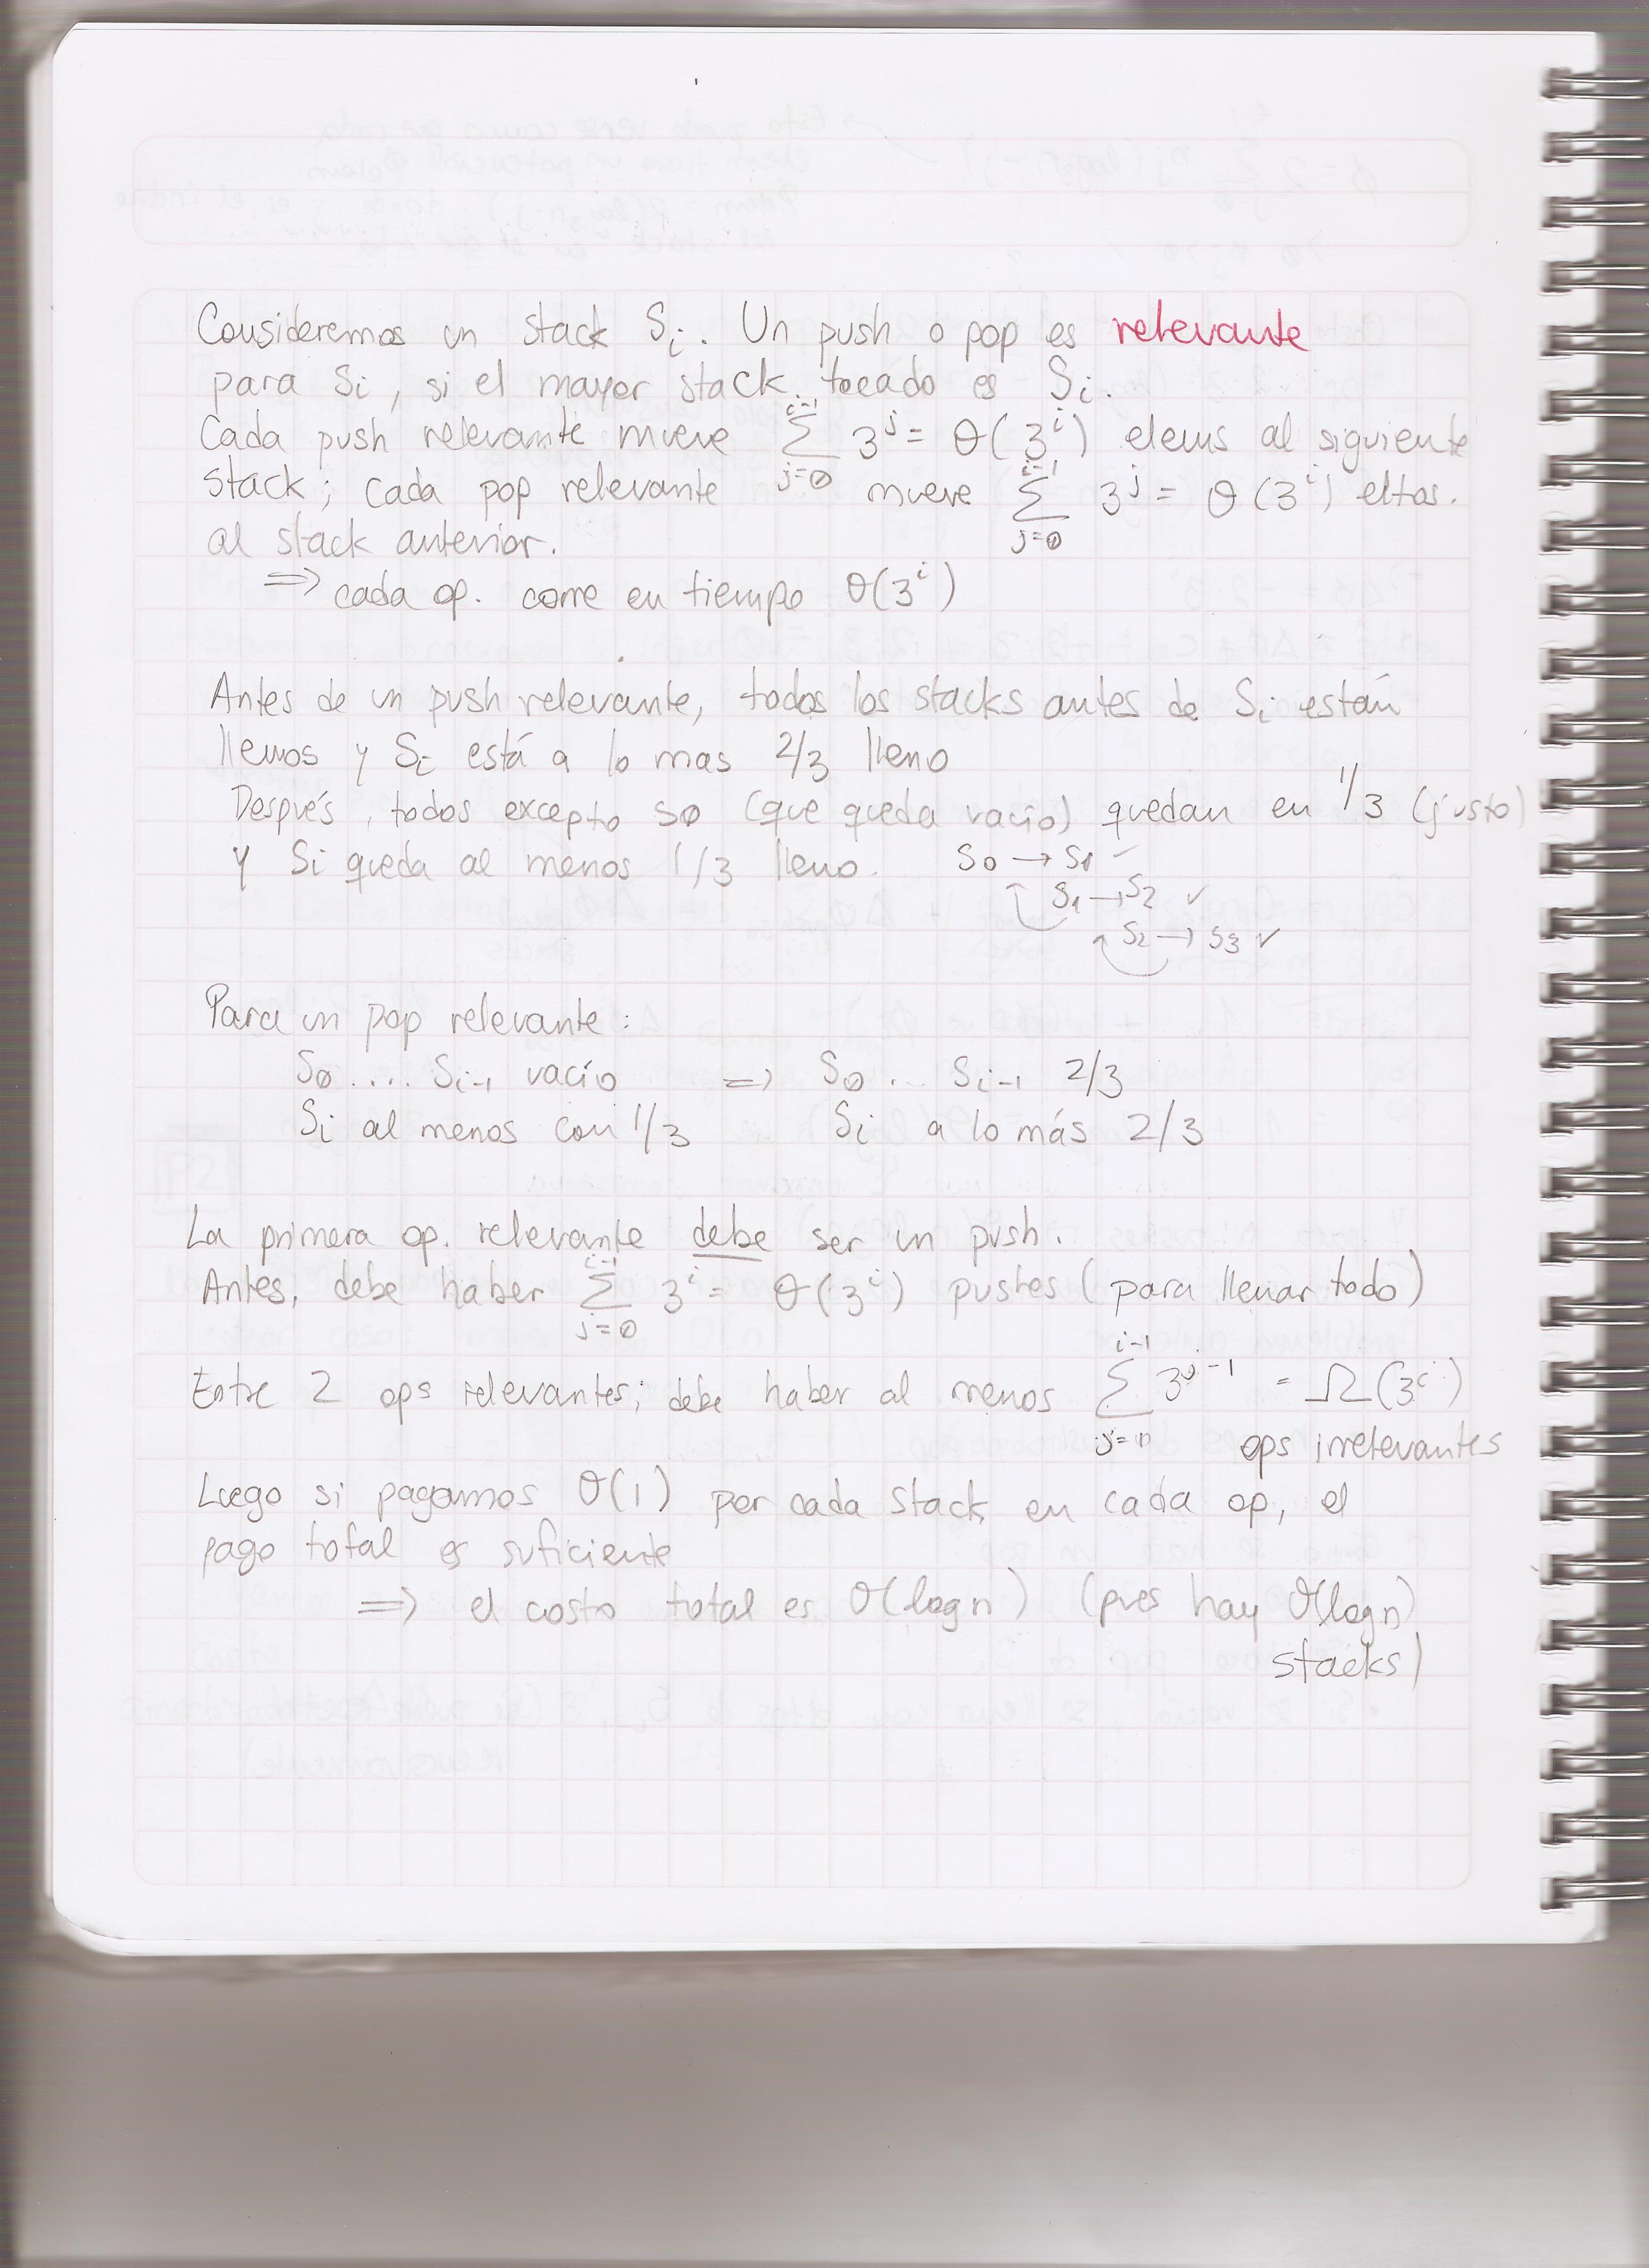 Consideremos un stack Si. Un push o pop es relevante
para Si, si el mayor stack tocado es Si.
Cada push relevante mueve ∑_{j=0}^{i-1} 3^j = θ(3^i) elems al siguiente
stack; cada pop relevante mueve ∑_{j=0}^{i-1} 3^j = θ(3^i) eltos.
al stack anterior.
⇒ cada op. corre en tiempo θ(3^i)
Antes de un push relevante, todos los stacks antes de Si están
llenos y Si está a lo mas 2/3 lleno
Después, todos excepto S0 (que queda vacío) quedan en 1/3 (justo)
y Si queda al menos 1/3 lleno.
S0 → S1 ✓
S1 → S2 ✓
S2 → S3 ✓
Para un pop relevante:
S0 .... Si-1 vacío ⇒ S0 ... Si-1 2/3
Si al menos con 1/3 Si a lo más 2/3
La primera op. relevante debe ser un push.
Antes, debe haber ∑_{j=0}^{i-1} 3^i = θ(3^i) pushes (para llenar todo)
Entre 2 ops relevantes; debe haber al menos ∑_{j=0}^{i-1} 3^{j-1} = Ω(3^i)
ops irrelevantes
Luego si pagamos θ(1) por cada stack en cada op, el
pago total es suficiente
⇒ el costo total es θ(log n) (pues hay θ(log n)
stacks)